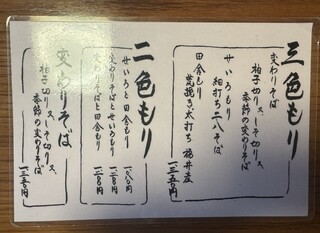 三色もり
変わりそば
柚子切り又、しそ切り又、
季節の変わりそば
せいろもり
細打ち二八そば
田舎もり
荒挽き太打ち 福井産
一三五〇円
二色もり
せいろと田舎もり 一〇八〇円
変わりそばとせいろもり 一二〇〇円
変わりそばと田舎もり 一二〇〇円
変わりそば
柚子切り又、しそ切り又、
季節の変わりそば
一三五〇円